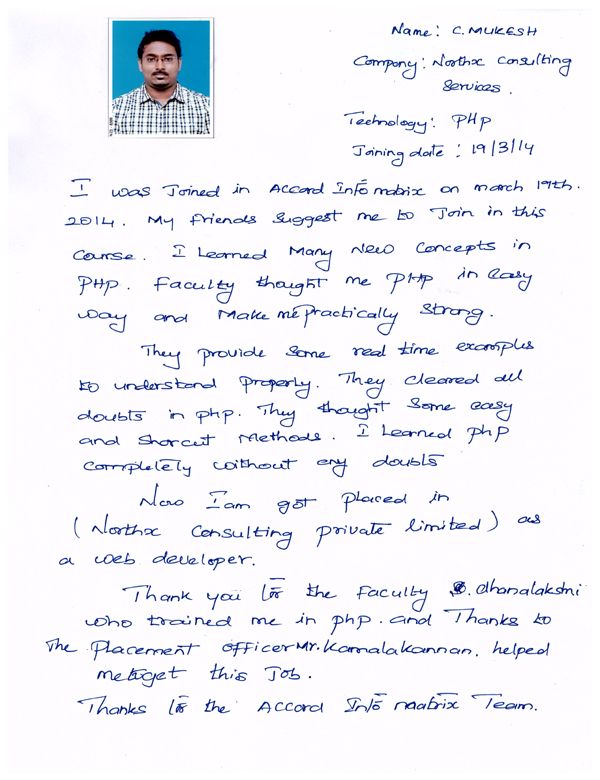 Name: C. MUKESH
Company: Northx Consulting
Services.
Technology: PHP
Joining date: 19/3/14
I was Joined in Accord Info matrix on march 19th.
2014. My friends Suggest me to Join in this
Course. I Learned Many New Concepts in
PHP. Faculty thaught me PHP in easy
way and Make me Practically Strong.
They provide Some real time examples
to understand Properly. They Cleared all
doubts in php. They thought Some easy
and Shorcut Methods. I Learned php
Completely without any doubts
Now I am got placed in
(Northx Consulting private limited) as
a web developer.
Thank you for the Faculty S. dhanalakshmi
who trained me in php. and Thanks to
The Placement officer Mr. Kamalakannan. helped
me to get this Job.
Thanks for the Accord Info maatrix Team.